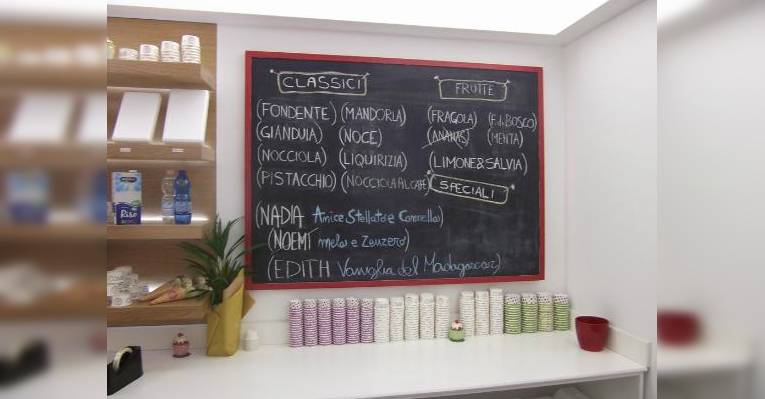 CLASSICI
(FONDENTE) (MANDORLA)
(GIANDUIA) (NOCE)
(NOCCIOLA) (LIQUIRIZIA)
(PISTACCHIO) (NOCCIOLA AL CAFFE)
FRUTTE
(FRAGOLA) (F. di BOSCO)
(ANANAS) (MENTA)
(LIMONE & SALVIA)
SPECIALI
(NADIA Anice Stellato e Cannella)
(NOEMI mela e Zenzero)
(EDITH Vaniglia del Madagascar)
Riso